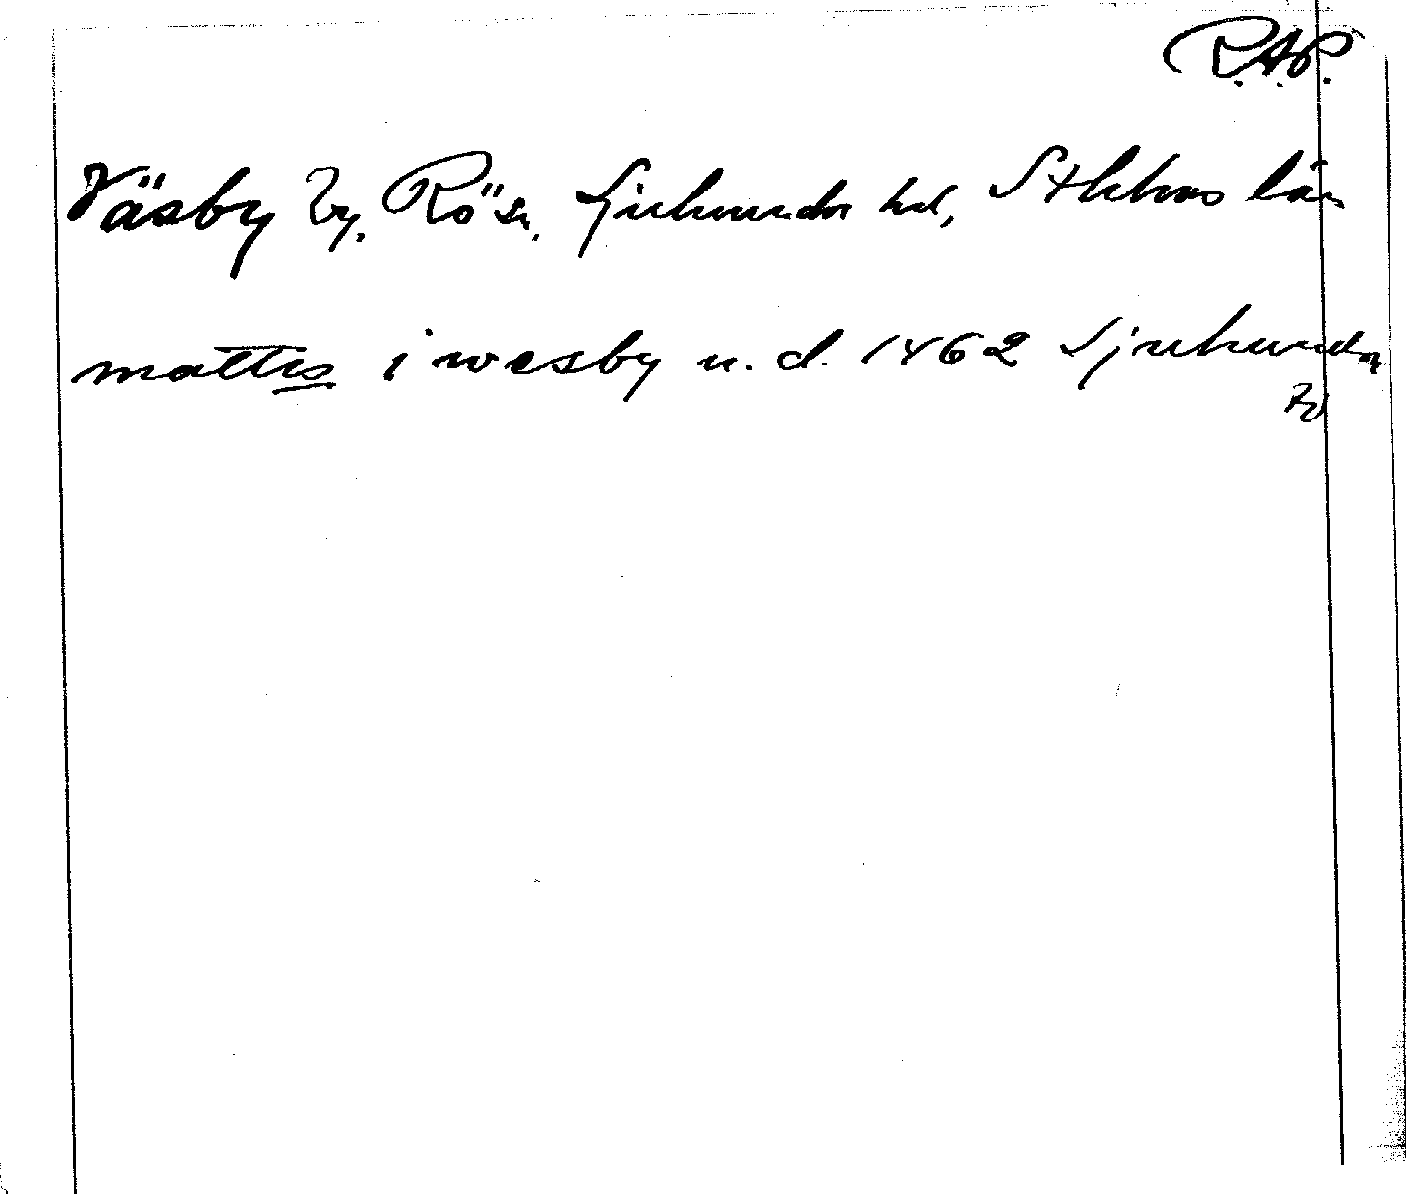 R.A.P.
Väsby by. Rö sn. Sjuhunda hd, Sthlms län
mattis i wesby u. d. 1462 Sjuhunda